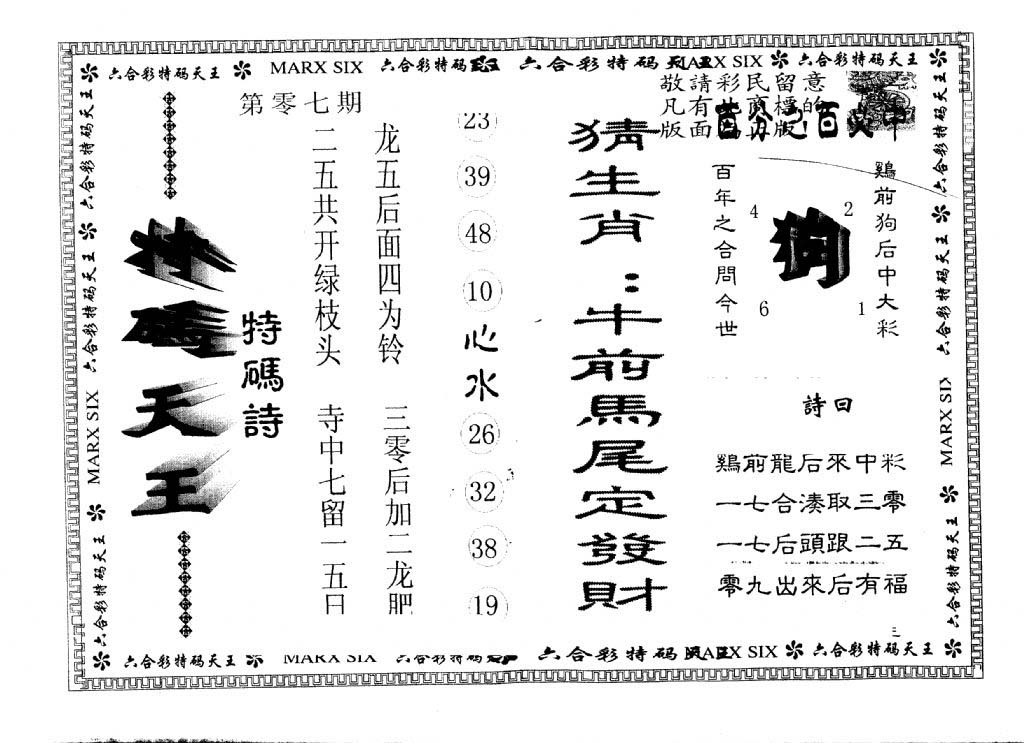 六合彩特码天王 MARX SIX 六合彩特码 六合彩特码天王 MARX SIX 六合彩特码天王
第零七期
敬請彩民留意
凡有
版面
特碼天王
特碼詩
龙五后面四为铃
二五共开绿枝头
三零后加二龙肥
寺中七留一五日
23
39
48
10
心水
26
32
38
19
猜生肖：牛前馬尾定發財
鷄前狗后中大彩
百年之合問今世
狗
4
2
6
1
詩曰
鷄前龍后來中彩
一七合湊取三零
一七后頭跟二五
零九出來后有福
六合彩特码天王
六合彩特码天王
MARX SIX
六合彩特码天王
六合彩特码天王
六合彩特码天王
MARX SIX
六合彩特码天王
六合彩特码天王 MARX SIX 六合彩特码 六合彩特码 MARX SIX 六合彩特码天王